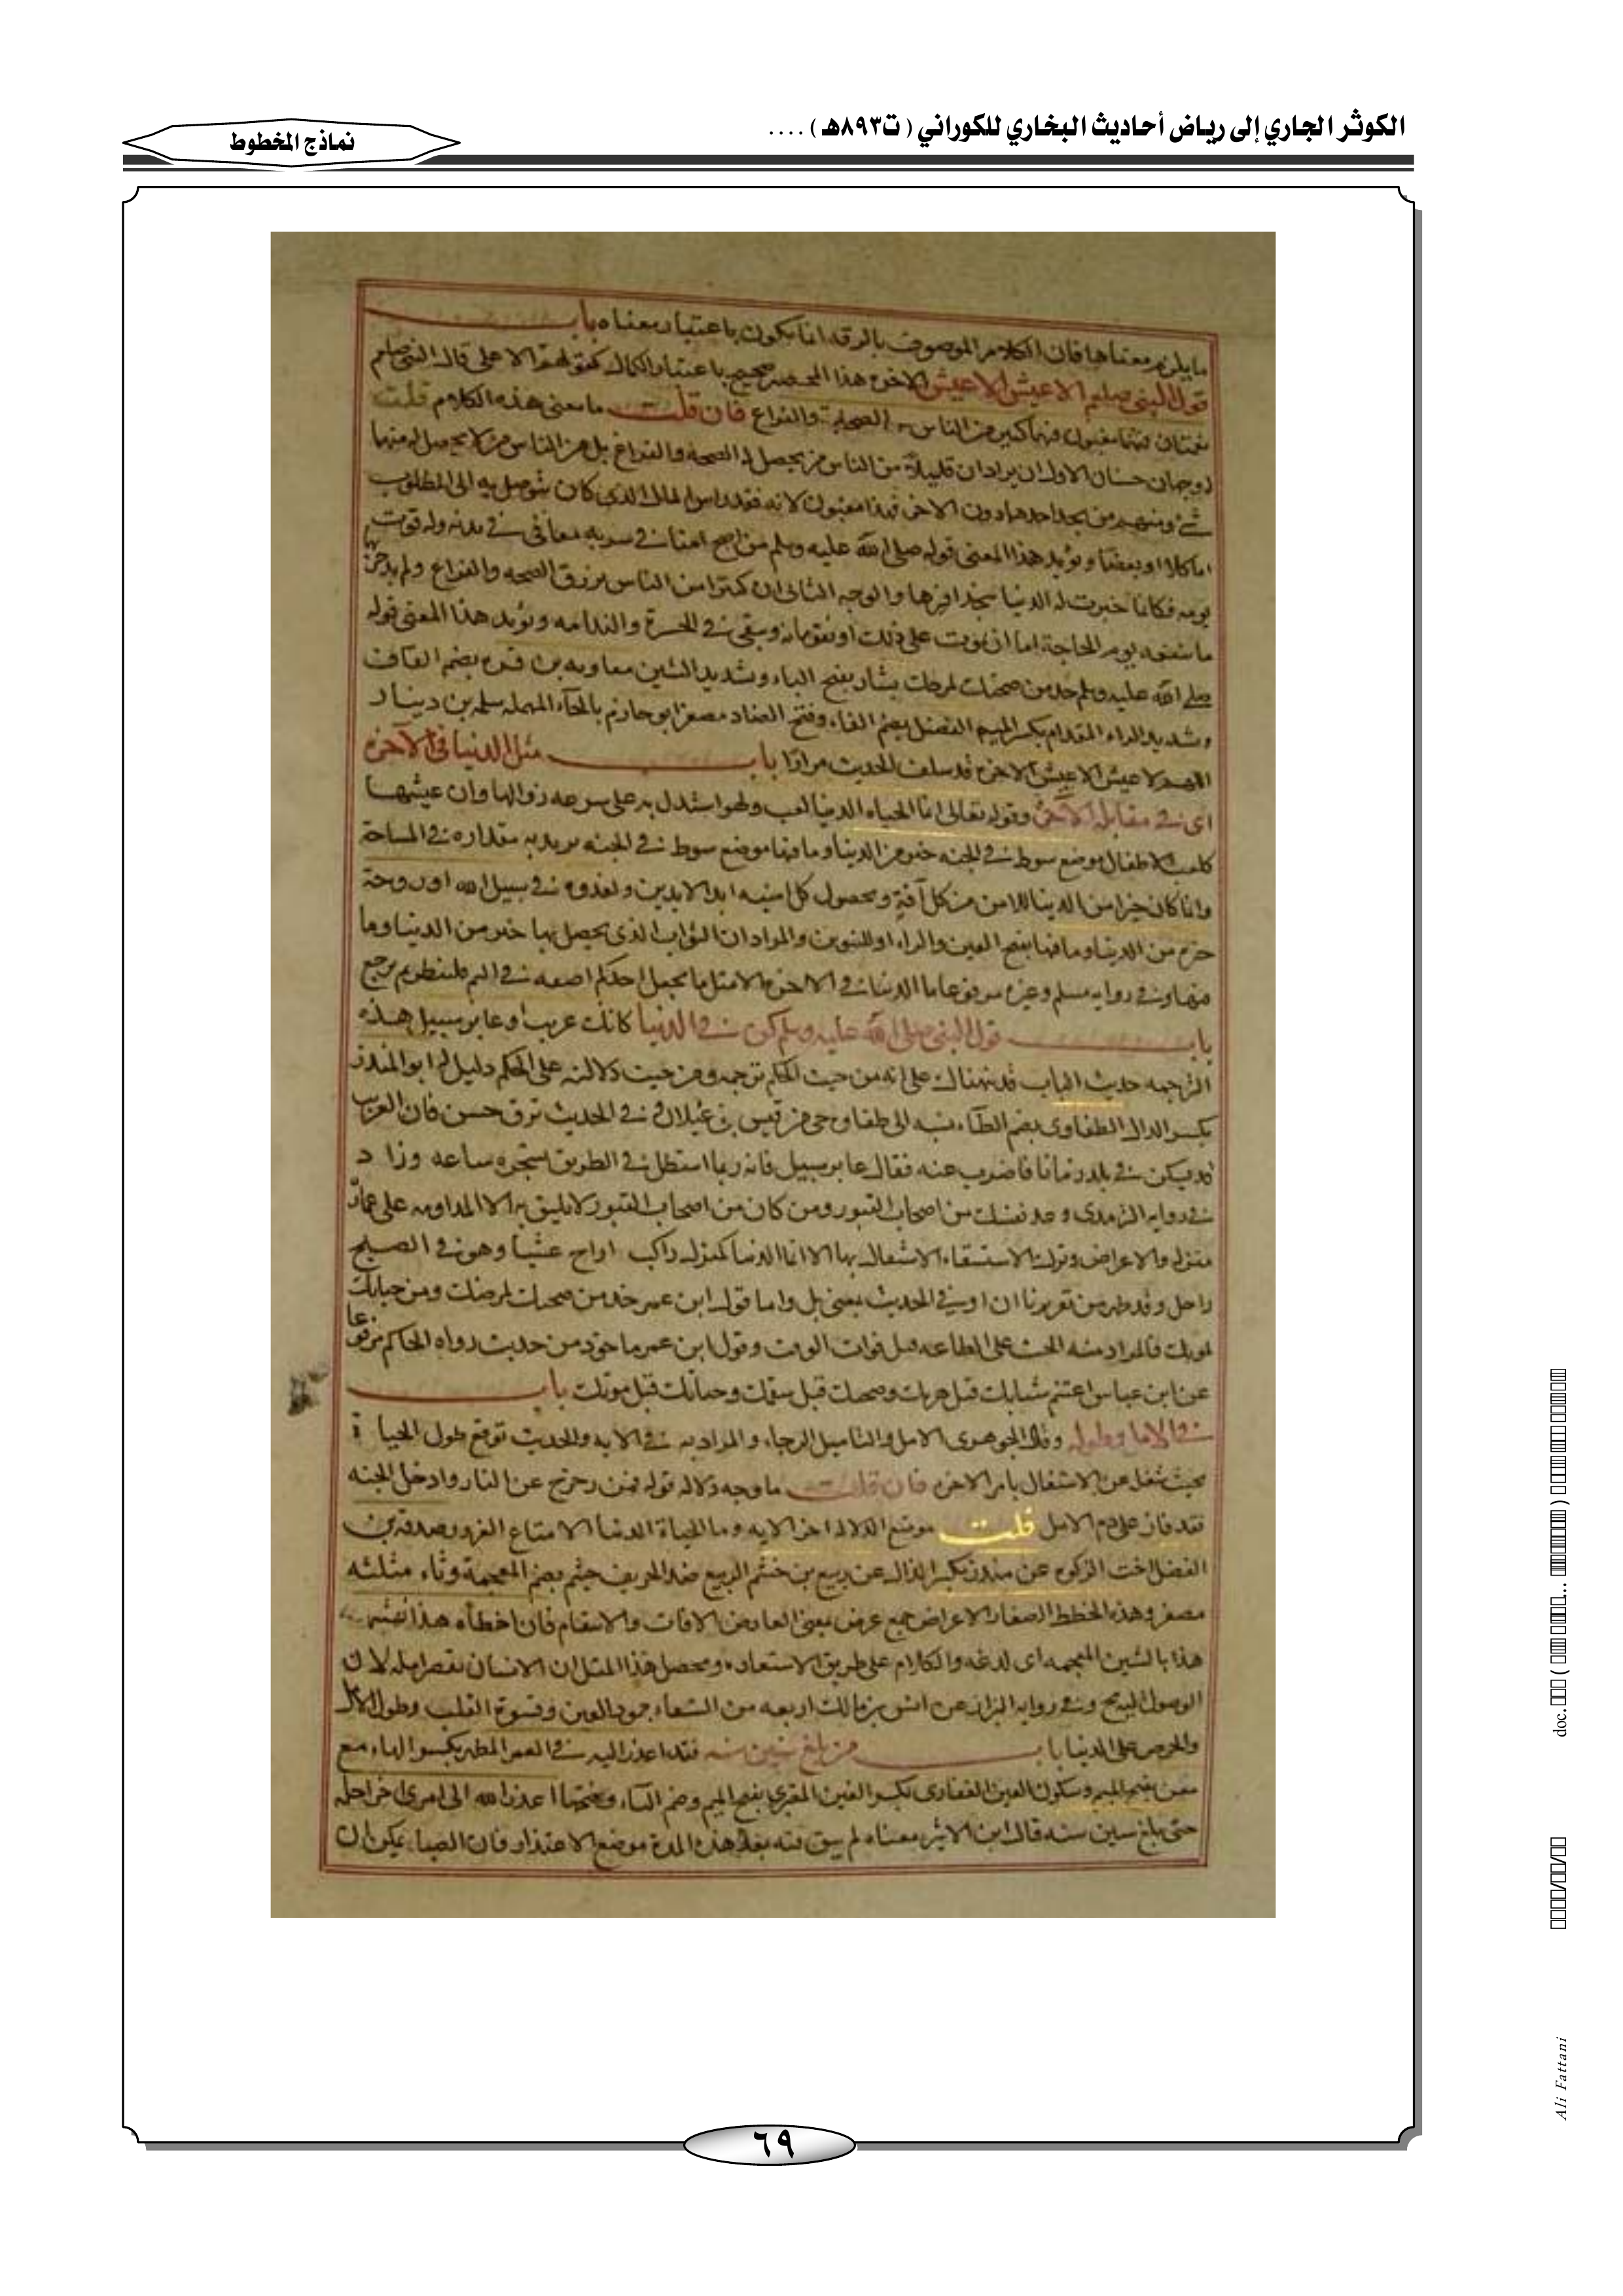 الكوثر الجاري إلى رياض أحاديث البخاري للكوراني ( ت٨٩٣هـ ) ....
نماذج المخطوط
معناها فان الكلام الموصوف بالرقه انما يكون باعتبار معناه باب
قول النبي صلعم لا عيش الا عيش الاخره هذا الحصر صحيح باعتبار الكمال الاعلى قال النبي صلعم
نعمتان مغبون فيهما كثير من الناس الصحة والفراغ فان قلت ما معنى هذه الكلام قلت
وجهان حسنان الاول ان يراد ان من الناس من يحصل له الصحه والفراغ بل من الناس من لا يحصل له منهما
شئ ومنهم من يجد احدهما دون الاخر فهذا مغبون لانه فقد راس المال الذي كان يتوصل به الى المطلوب
اما كلا او بعضا ويؤيد هذا المعنى قوله صلى الله عليه وسلم من اصبح امنا في سربه معافى في بدنه وله قوت
يومه فكانما الدنيا بحذافيرها والوجه الثاني ان كثيرا من الناس يرزق الصحه والفراغ ولم يدخر
ما ينفعه يوم الحاجة اما ان يموت على ذلك او ويبقى في الحسرة والندامه ويؤيد هذا المعنى قوله
صلى الله عليه وسلم خذ من صحتك لمرضك بشار بفتح الباء وتشديد الشين معاويه بن قره بضم القاف
وتشديد الراء المقدام بكسر الميم الفضيل بضم الفاء وفتح الضاد مصغر ابو حازم بالحاء المهمله سلمه بن دينار
اللهم لا عيش الا عيش الاخره قد سلف الحديث مرارا باب مثل الدنيا في الآخرة
اى في مقابله الآخرة وقوله تعالى انما الحياه الدنيا لعب ولهو استدل به على سرعه زوالها وان عيشها
كلعب الاطفال موضع سوط في الجنه خير من الدنيا وما فيها موضع سوط في الجنه يريد به مقداره في المساحة
وانما كان خيرا من الدينا للامن من كل آفة وحصول كل امنيه ابد الابدين ولغدوه في سبيل الله او روحة
خير من الدنيا وما فيها بفتح الغين والراء او للتنوين والمراد ان الثواب الذي يحصل بها خير من الدنيا وما
فيها وفي روايه مسلم وغيره مرفوعا ما الدنيا في الاخره الا مثل ما يجعل احدكم اصبعه في اليم فلينظر بم يرجع
باب قول النبي صلى الله عليه وسلم كن في الدنيا كانك غريب او عابر سبيل هذه
الترجمه حديث الباب قد نبهناك على انه من حيث الحكم ترجمه ومن حيث دلالته على الحكم دليل له ابو المنذر
بكسر الذال الطفاوى بضم الطاء نسبه الى طفاوه حى من قيس بن غيلان وفي الحديث ترق حسن فان الغريب
قد يسكن في بلد زمانا فاضرب عنه فقال عابر سبيل فانه ربما استظل في الطريق بشجره ساعه وزاد
في روايه الترمذى وعد نفسك من اصحاب القبور ومن كان من اصحاب القبور لا يليق به الا المداومه على عمارة
منزله والاعراض وترك الاشتغال بها الا انما الدنيا كمنزل راكب اراح عشيا وهو في الصبح
راحل وقد ظهر من تقريرنا ان او في الحديث بمعنى بل واما قول ابن عمر خذ من صحتك لمرضك ومن حياتك
لموتك فالمراد منه الحث على الطاعه قبل فوات الوقت وقول ابن عمر ماخوذ من حديث رواه الحاكم مرفوعا
عن ابن عباس اغتنم شبابك قبل هرمك وصحتك قبل سقمك وحياتك قبل موتك باب
في الامل وطوله وقال الجوهرى الامل والتاميل الرجاء والمراد به في الايه والحديث توقع طول الحياة
بحيث يشغل عن الاشتغال بامر الاخره فان قلت ما وجه دلاله قوله فمن زحزح عن النار وادخل الجنه
فقد فاز على ذم الامل قلت موضع الدلاله اخر الايه وما الحياة الدنيا الا متاع الغرور صدقه بن
الفضل اخت الزكوه عن منذر بكسر الذال عن ربيع بن خثيم الربيع ضد الخريف خثيم بضم المعجمة وثاء مثلثه
مصغر وهذه الخطط الصغار الاعراض جمع عرض بمعنى العارض الافات والاسقام فان اخطأه هذا نهشه
هذا بالشين المعجمه اى لدغه والكلام على طريق الاستعاده ومحصل هذا المثل ان الانسان يقصر امله لان
الوصول اليه وفي روايه البزار عن انس بن مالك اربعه من الشقاء جمود العين وقسوة القلب وطول الامل
والحرص على الدنيا باب من بلغ ستين سنه فقد اعذر اليه في العمر المطهر بكسر الهاء مع
معن بفتح الميم وسكون العين الغفارى بكسر الغين المقبرى بفتح الميم وضم الباء وفتحها اعذر الله الى امرئ اخر اجله
حتى بلغ ستين سنه قال ابن الاثير معناه لم يبق فيه بعد هذه المدة موضع الاعتذار فان الصبا يمكن ان
٦٩
doc.
Ali Fattani